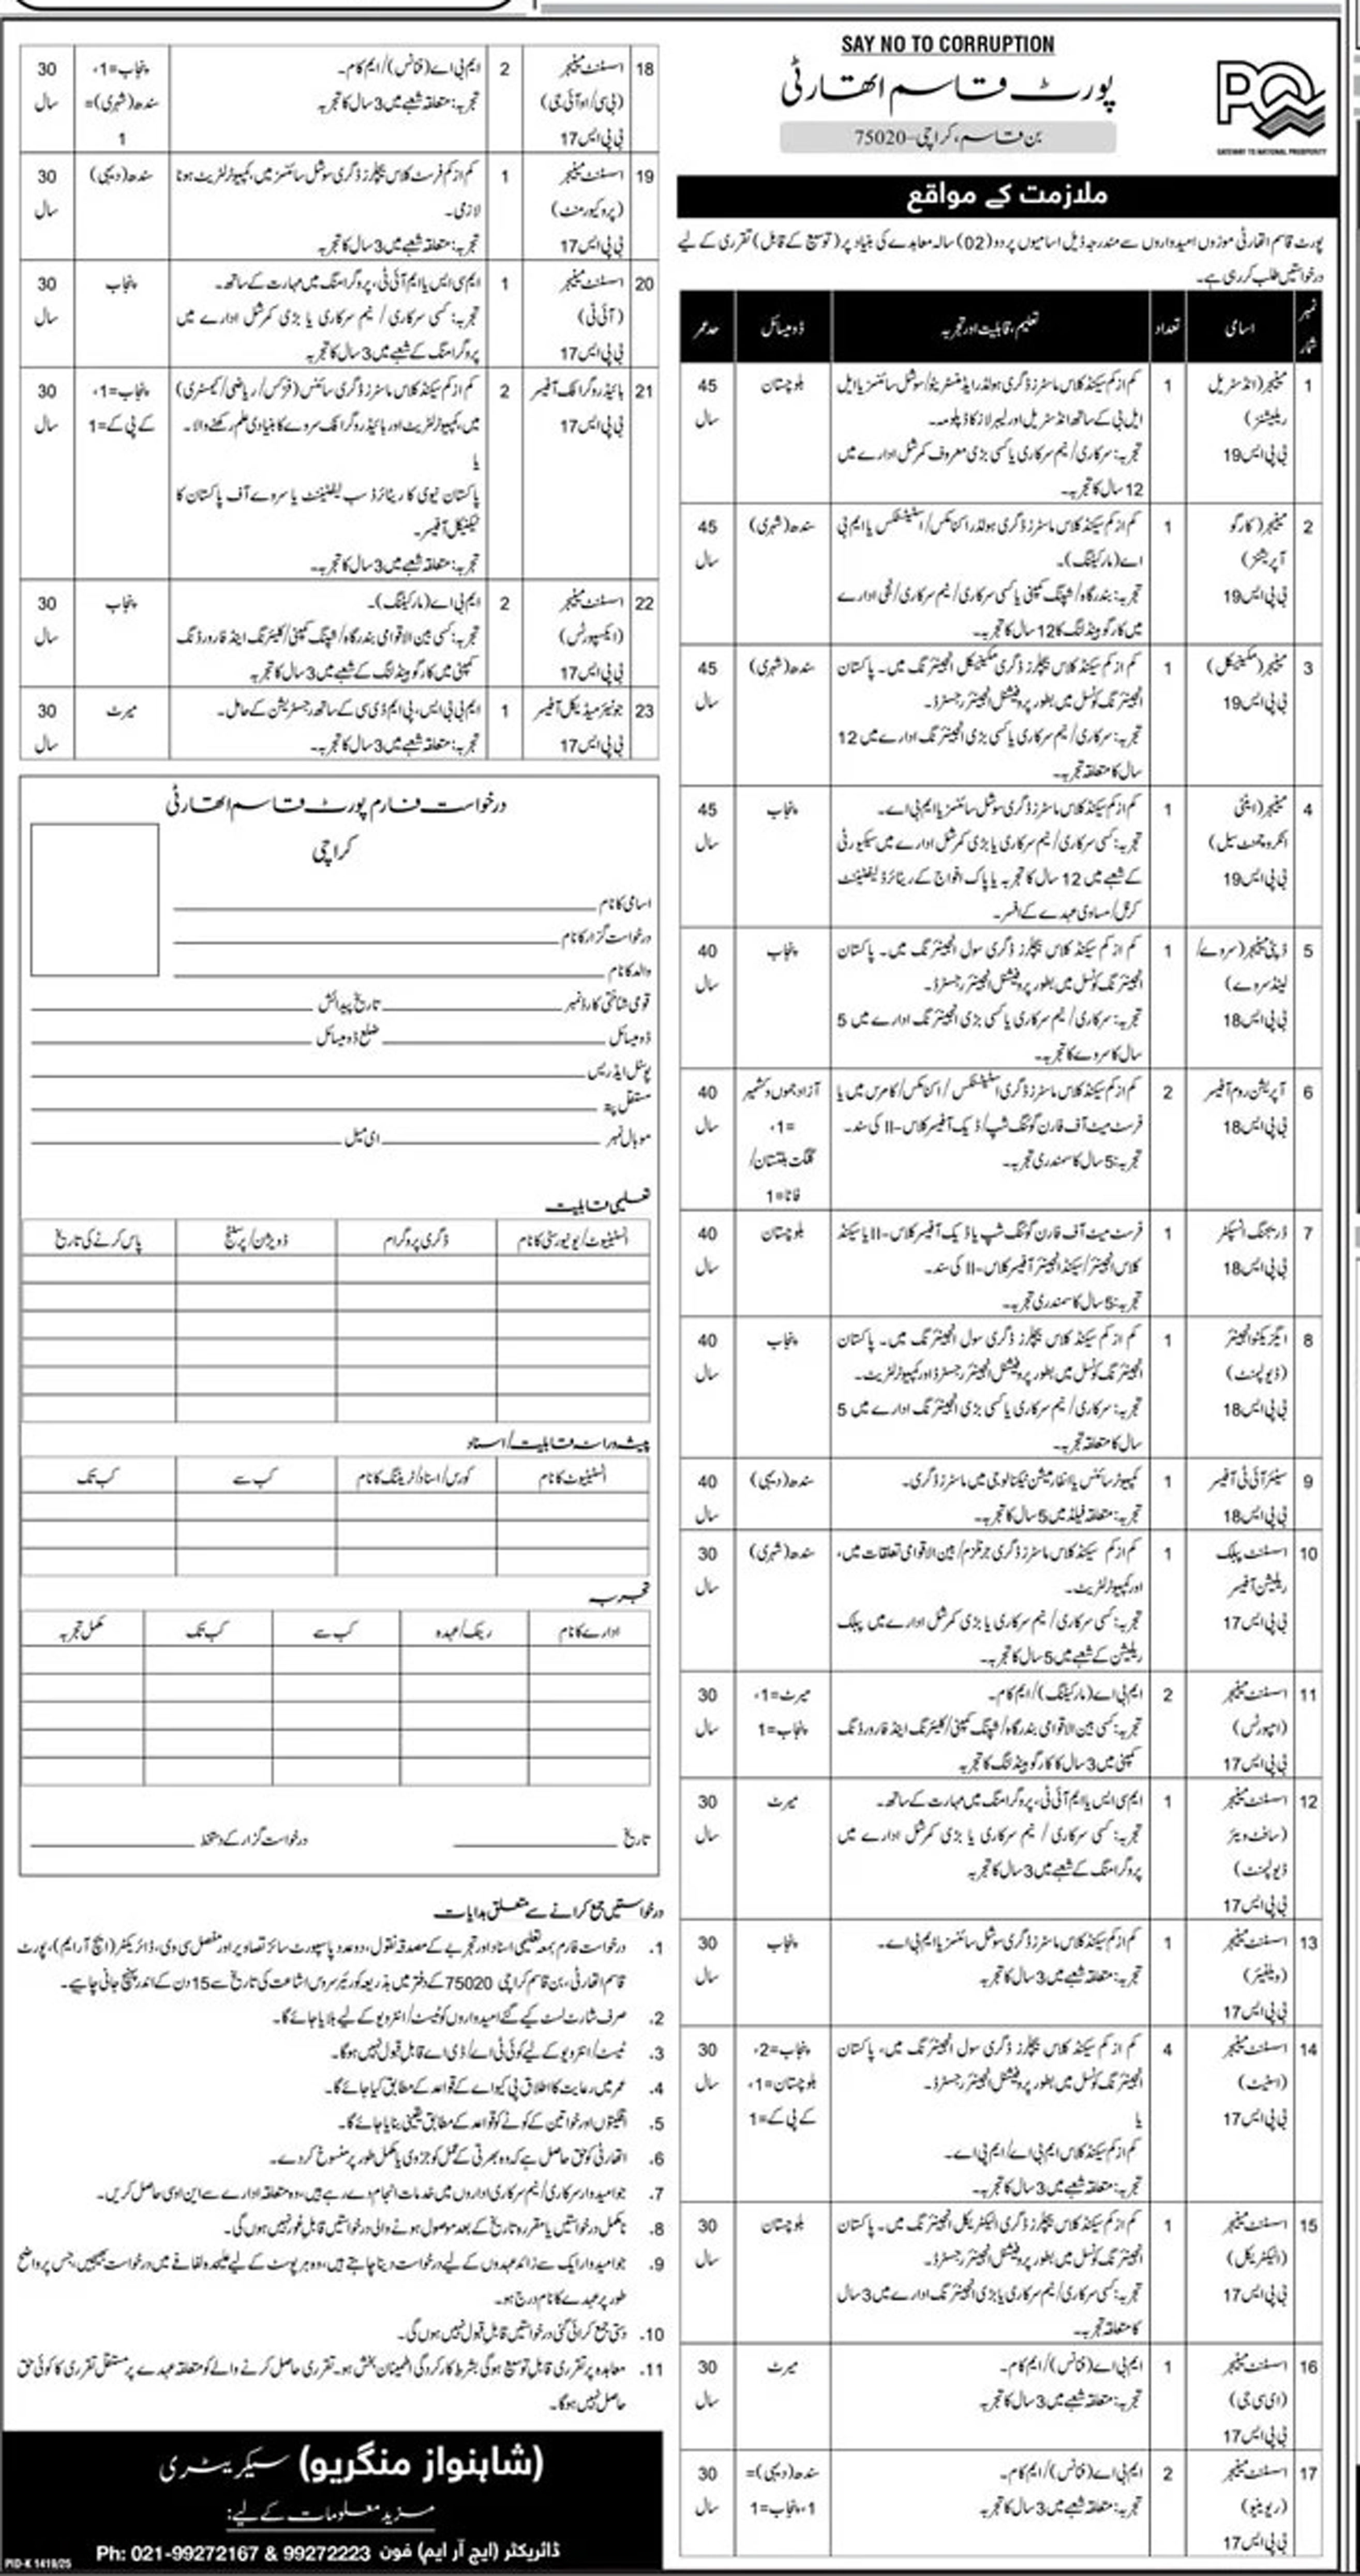 SAY NO TO CORRUPTION
پورٹ قاسم اتھارٹی
بن قاسم، کراچی-75020
PQA
GATEWAY TO NATIONAL PROSPERITY
ملازمت کے مواقع
پورٹ قاسم اتھارٹی موزوں امیدواروں سے مندرجہ ذیل اسامیوں پر دو (02) سالہ معاہدے کی بنیاد پر (توسیع کے قابل) تقرری کے لیے
درخواستیں طلب کر رہی ہے۔
نمبر شمار | اسامی | تعداد | تعلیم، قابلیت اور تجربہ | ڈومیسائل | حد عمر
1 | مینیجر (انڈسٹریل ریلیشنز) بی پی ایس 19 | 1 | کم از کم سیکنڈ کلاس ماسٹرز ڈگری ہولڈر ایڈمنسٹریٹو/سوشل سائنسز یا ایل ایل بی کے ساتھ انڈسٹریل اور لیبر لاز کا ڈپلومہ۔ تجربہ: سرکاری/نیم سرکاری یا کسی بڑی معروف کمرشل ادارے میں 12 سال کا تجربہ۔ | بلوچستان | 45 سال
2 | مینیجر (کارگو آپریشنز) بی پی ایس 19 | 1 | کم از کم سیکنڈ کلاس ماسٹرز ڈگری ہولڈر اکنامکس/اسٹیٹسٹکس یا ایم بی اے (مارکیٹنگ)۔ تجربہ: بندرگاہ/شپنگ کمپنی یا کسی سرکاری/نیم سرکاری/نجی ادارے میں کارگو ہینڈلنگ کا 12 سال کا تجربہ۔ | سندھ (شہری) | 45 سال
3 | مینیجر (مکینیکل) بی پی ایس 19 | 1 | کم از کم سیکنڈ کلاس بیچلرز ڈگری مکینیکل انجینئرنگ میں۔ پاکستان انجینئرنگ کونسل میں بطور پروفیشنل انجینئر رجسٹرڈ۔ تجربہ: سرکاری/نیم سرکاری یا کسی بڑی انجینئرنگ ادارے میں 12 سال کا متعلقہ تجربہ۔ | سندھ (شہری) | 45 سال
4 | مینیجر (اینٹی انکروچمنٹ سیل) بی پی ایس 19 | 1 | کم از کم سیکنڈ کلاس ماسٹرز ڈگری سوشل سائنسز یا ایم بی اے۔ تجربہ: کسی سرکاری/نیم سرکاری یا بڑی کمرشل ادارے میں سیکیورٹی کے شعبے میں 12 سال کا تجربہ یا پاک افواج کے ریٹائرڈ لیفٹیننٹ کرنل/مساوی عہدے کے افسر۔ | پنجاب | 45 سال
5 | ڈپٹی مینیجر (سروے/لینڈ سروے) بی پی ایس 18 | 1 | کم از کم سیکنڈ کلاس بیچلرز ڈگری سول انجینئرنگ میں۔ پاکستان انجینئرنگ کونسل میں بطور پروفیشنل انجینئر رجسٹرڈ۔ تجربہ: سرکاری/نیم سرکاری یا کسی بڑی انجینئرنگ ادارے میں 5 سال کا سروے کا تجربہ۔ | پنجاب | 40 سال
6 | آپریشن روم آفیسر بی پی ایس 18 | 2 | کم از کم سیکنڈ کلاس ماسٹرز ڈگری اسٹیٹسٹکس/اکنامکس/کامرس میں یا فرسٹ میٹ آف فارن گوئنگ شپ/ڈیک آفیسر کلاس-II کی سند۔ تجربہ: 5 سال کا سمندری تجربہ۔ | آزاد جموں و کشمیر =1، گلگت بلتستان/فاٹا=1 | 40 سال
7 | ڈریجنگ انسپکٹر بی پی ایس 18 | 1 | فرسٹ میٹ آف فارن گوئنگ شپ یا ڈیک آفیسر کلاس-II یا سیکنڈ کلاس انجینئر/سیکنڈ انجینئر آفیسر کلاس-II کی سند۔ تجربہ: 5 سال کا سمندری تجربہ۔ | بلوچستان | 40 سال
8 | ایگزیکٹو انجینئر (ڈیولپمنٹ) بی پی ایس 18 | 1 | کم از کم سیکنڈ کلاس بیچلرز ڈگری سول انجینئرنگ میں۔ پاکستان انجینئرنگ کونسل میں بطور پروفیشنل انجینئر رجسٹرڈ اور کمپیوٹر لٹریٹ۔ تجربہ: سرکاری/نیم سرکاری یا کسی بڑی انجینئرنگ ادارے میں 5 سال کا متعلقہ تجربہ۔ | پنجاب | 40 سال
9 | سینئر آئی ٹی آفیسر بی پی ایس 18 | 1 | کمپیوٹر سائنس یا انفارمیشن ٹیکنالوجی میں ماسٹرز ڈگری۔ تجربہ: متعلقہ فیلڈ میں 5 سال کا تجربہ۔ | سندھ (دیہی) | 40 سال
10 | اسسٹنٹ پبلک ریلیشن آفیسر بی پی ایس 17 | 1 | کم از کم سیکنڈ کلاس ماسٹرز ڈگری جرنلزم/بین الاقوامی تعلقات میں، اور کمپیوٹر لٹریٹ۔ تجربہ: کسی سرکاری/نیم سرکاری یا بڑی کمرشل ادارے میں پبلک ریلیشن کے شعبے میں 5 سال کا تجربہ۔ | سندھ (شہری) | 30 سال
11 | اسسٹنٹ مینیجر (امپورٹس) بی پی ایس 17 | 2 | ایم بی اے (مارکیٹنگ)/ایم کام۔ تجربہ: کسی بین الاقوامی بندرگاہ/شپنگ کمپنی/کلیئرنگ اینڈ فارورڈنگ کمپنی میں 3 سال کا کارگو ہینڈلنگ کا تجربہ | میرٹ=1، پنجاب=1 | 30 سال
12 | اسسٹنٹ مینیجر (سافٹ ویئر ڈیولپمنٹ) بی پی ایس 17 | 1 | ایم سی ایس یا ایم آئی ٹی، پروگرامنگ میں مہارت کے ساتھ۔ تجربہ: کسی سرکاری/نیم سرکاری یا بڑی کمرشل ادارے میں پروگرامنگ کے شعبے میں 3 سال کا تجربہ | میرٹ | 30 سال
13 | اسسٹنٹ مینیجر (ویلفیئر) بی پی ایس 17 | 1 | کم از کم سیکنڈ کلاس ماسٹرز ڈگری سوشل سائنسز یا ایم بی اے۔ تجربہ: متعلقہ شعبے میں 3 سال کا تجربہ | پنجاب | 30 سال
14 | اسسٹنٹ مینیجر (اسٹیٹ) بی پی ایس 17 | 4 | کم از کم سیکنڈ کلاس بیچلرز ڈگری سول انجینئرنگ میں، پاکستان انجینئرنگ کونسل میں بطور پروفیشنل انجینئر رجسٹرڈ۔ یا کم از کم سیکنڈ کلاس ایم بی اے/ایم پی اے۔ تجربہ: متعلقہ شعبے میں 3 سال کا تجربہ۔ | پنجاب=2، بلوچستان=1، کے پی کے=1 | 30 سال
15 | اسسٹنٹ مینیجر (الیکٹریکل) بی پی ایس 17 | 1 | کم از کم سیکنڈ کلاس بیچلرز ڈگری الیکٹریکل انجینئرنگ میں۔ پاکستان انجینئرنگ کونسل میں بطور پروفیشنل انجینئر رجسٹرڈ۔ تجربہ: کسی سرکاری/نیم سرکاری یا بڑی انجینئرنگ ادارے میں 3 سال کا متعلقہ تجربہ۔ | بلوچستان | 30 سال
16 | اسسٹنٹ مینیجر (ای سی جی) بی پی ایس 17 | 1 | ایم بی اے (فنانس)/ایم کام۔ تجربہ: متعلقہ شعبے میں 3 سال کا تجربہ | میرٹ | 30 سال
17 | اسسٹنٹ مینیجر (ریونیو) بی پی ایس 17 | 2 | ایم بی اے (فنانس)/ایم کام۔ تجربہ: متعلقہ شعبے میں 3 سال کا تجربہ | سندھ (دیہی)=1، پنجاب=1 | 30 سال
18 | اسسٹنٹ مینیجر (بی سی/او آئی جی) بی پی ایس 17 | 2 | ایم بی اے (فنانس)/ایم کام۔ تجربہ: متعلقہ شعبے میں 3 سال کا تجربہ | پنجاب=1، سندھ (شہری)=1 | 30 سال
19 | اسسٹنٹ مینیجر (پروکیورمنٹ) بی پی ایس 17 | 1 | کم از کم فرسٹ کلاس بیچلرز ڈگری سوشل سائنسز میں، کمپیوٹر لٹریٹ ہونا لازمی۔ تجربہ: متعلقہ شعبے میں 3 سال کا تجربہ | سندھ (دیہی) | 30 سال
20 | اسسٹنٹ مینیجر (آئی ٹی) بی پی ایس 17 | 1 | ایم سی ایس یا ایم آئی ٹی، پروگرامنگ میں مہارت کے ساتھ۔ تجربہ: کسی سرکاری/نیم سرکاری یا بڑی کمرشل ادارے میں پروگرامنگ کے شعبے میں 3 سال کا تجربہ | پنجاب | 30 سال
21 | ہائیڈروگرافک آفیسر بی پی ایس 17 | 2 | کم از کم سیکنڈ کلاس ماسٹرز ڈگری سائنس (فزکس/ریاضی/کیمسٹری) میں، کمپیوٹر لٹریٹ اور ہائیڈروگرافک سروے کا بنیادی علم رکھنے والا۔ یا پاکستان نیوی کا ریٹائرڈ سب لیفٹیننٹ یا سروے آف پاکستان کا ٹیکنیکل آفیسر۔ تجربہ: متعلقہ شعبے میں 3 سال کا تجربہ۔ | پنجاب=1، کے پی کے=1 | 30 سال
22 | اسسٹنٹ مینیجر (ایکسپورٹس) بی پی ایس 17 | 2 | ایم بی اے (مارکیٹنگ)۔ تجربہ: کسی بین الاقوامی بندرگاہ/شپنگ کمپنی/کلیئرنگ اینڈ فارورڈنگ کمپنی میں کارگو ہینڈلنگ کے شعبے میں 3 سال کا تجربہ | پنجاب | 30 سال
23 | جونیئر میڈیکل آفیسر بی پی ایس 17 | 1 | ایم بی بی ایس، پی ایم ڈی سی کے ساتھ رجسٹریشن کے حامل۔ تجربہ: متعلقہ شعبے میں 3 سال کا تجربہ۔ | میرٹ | 30 سال
درخواست فارم پورٹ قاسم اتھارٹی
کراچی
اسامی کا نام
درخواست گزار کا نام
والد کا نام
قومی شناختی کارڈ نمبر تاریخ پیدائش
ڈومیسائل ضلع ڈومیسائل
پوسٹل ایڈریس
مستقل پتہ
موبائل نمبر ای میل
تعلیمی قابلیت
انسٹیٹیوٹ/یونیورسٹی کا نام | ڈگری پروگرام | ڈویژن/پرسنٹیج | پاس کرنے کی تاریخ
پیشہ ورانہ قابلیت/اسناد
انسٹیٹیوٹ کا نام | کورس/اسناد/ٹریننگ کا نام | کب سے | کب تک
تجربہ
ادارے کا نام | رینک/عہدہ | کب سے | کب تک | مکمل تجربہ
تاریخ درخواست گزار کے دستخط
درخواستیں جمع کرانے سے متعلق ہدایات
1. درخواست فارم بمعہ تعلیمی اسناد اور تجربے کے مصدقہ نقول، دو عدد پاسپورٹ سائز تصاویر اور مفصل سی وی، ڈائریکٹر (ایچ آر ایم)، پورٹ
قاسم اتھارٹی، بن قاسم کراچی 75020 کے دفتر میں بذریعہ کوریئر سروس اشاعت کی تاریخ سے 15 دن کے اندر پہنچ جانی چاہیے۔
2. صرف شارٹ لسٹ کیے گئے امیدواروں کو ٹیسٹ/انٹرویو کے لیے بلایا جائے گا۔
3. ٹیسٹ/انٹرویو کے لیے کوئی ٹی اے/ڈی اے قابل قبول نہیں ہوگا۔
4. عمر میں رعایت کا اطلاق پی کیو اے کے قواعد کے مطابق کیا جائے گا۔
5. اقلیتوں اور خواتین کے کوٹے کو قواعد کے مطابق یقینی بنایا جائے گا۔
6. اتھارٹی کو حق حاصل ہے کہ وہ بھرتی کے عمل کو جزوی یا مکمل طور پر منسوخ کر دے۔
7. جو امیدوار سرکاری/نیم سرکاری اداروں میں خدمات انجام دے رہے ہیں، وہ متعلقہ ادارے سے این او سی حاصل کریں۔
8. نامکمل درخواستیں یا مقررہ تاریخ کے بعد موصول ہونے والی درخواستیں قابل غور نہیں ہوں گی۔
9. جو امیدوار ایک سے زائد عہدوں کے لیے درخواست دینا چاہتے ہیں، وہ ہر پوسٹ کے لیے علیحدہ لفافے میں درخواست بھیجیں، جس پر واضح
طور پر عہدے کا نام درج ہو۔
10. دستی جمع کرائی گئی درخواستیں قابل قبول نہیں ہوں گی۔
11. معاہدہ پر تقرری قابل توسیع ہوگی بشرط کارکردگی اطمینان بخش ہو۔ تقرری حاصل کرنے والے کو متعلقہ عہدے پر مستقل تقرری کا کوئی حق
حاصل نہیں ہوگا۔
(شاہنواز منگریو) سیکریٹری
مزید معلومات کے لیے:
ڈائریکٹر (ایچ آر ایم) فون Ph: 021-99272167 & 99272223
PID-K 1419/25